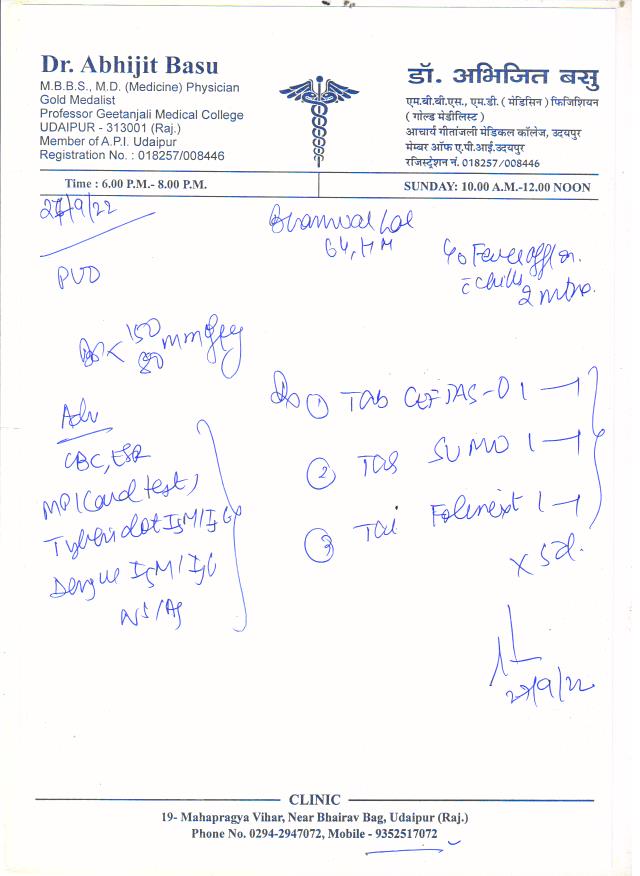 Dr. Abhijit Basu
M.B.B.S., M.D. (Medicine) Physician
Gold Medalist
Professor Geetanjali Medical College
UDAIPUR - 313001 (Raj.)
Member of A.P.I. Udaipur
Registration No. : 018257/008446
डॉ. अभिजित बसु
एम.बी.बी.एस., एम.डी. ( मेडिसिन ) फिजिशियन
( गोल्ड मेडीलिस्ट )
आचार्य गीतांजली मेडिकल कॉलेज, उदयपुर
मेम्बर ऑफ ए.पी.आई.उदयपुर
रजिस्ट्रेशन नं. 018257/008446
Time : 6.00 P.M.- 8.00 P.M.
SUNDAY: 10.00 A.M.-12.00 NOON
27/9/22
Bhanwar Lal
64, HM
C/o Fever off on.
c̄ chills
2 mths.
PVD
150
80
mmHg
Adv
CBC, ESR
MP (Card test)
Typhi dot IgM/IgG
Dengue IgM/IgG
NS/Ag
① TAB CEFTAS-O 1
② TAB SUMO 1
③ TAB 1
x 5d.
27/9/22
CLINIC
19- Mahapragya Vihar, Near Bhairav Bag, Udaipur (Raj.)
Phone No. 0294-2947072, Mobile - 9352517072